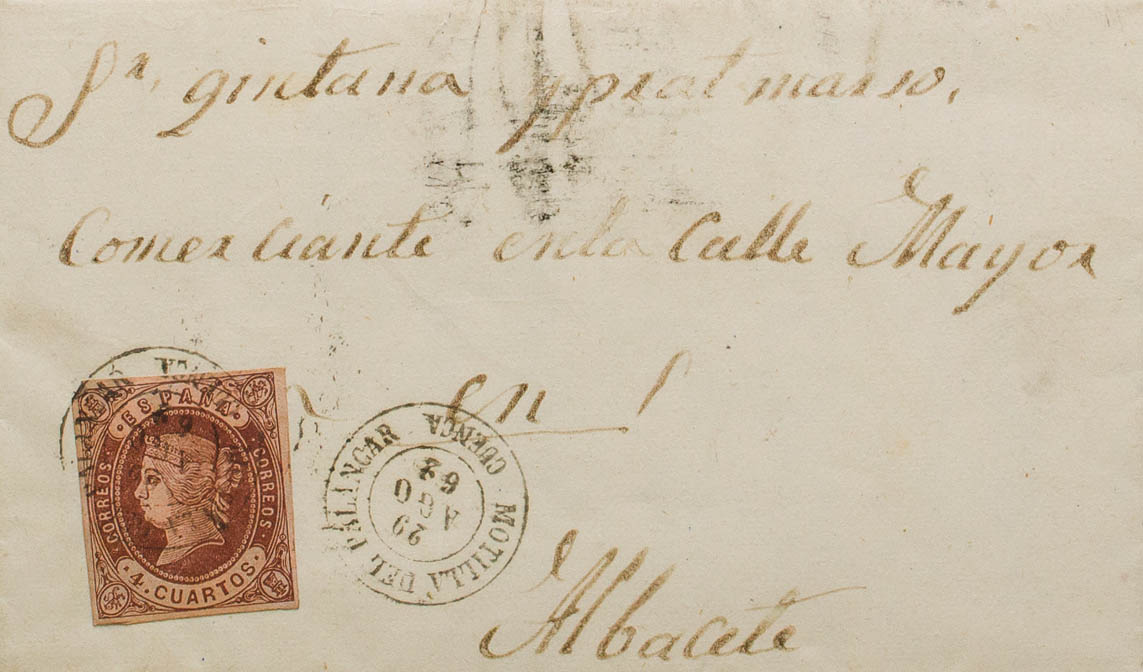 Sr. qintana y prat mario.
Comerciante en la Calle Mayor
En
Albacete
ESPAÑA
CORREOS
CORREOS
4. CUARTOS.
MOTILLA DEL PALANCAR
CUENCA
29
AGO
63